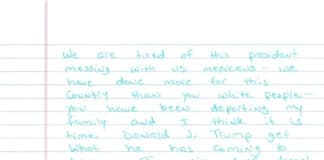 We are tired of this president
messing with us mexicans - we
have done more for this
country than you white people -
you have been deporting my
family and I think it is
time Donald J. Trump get
what he has coming to